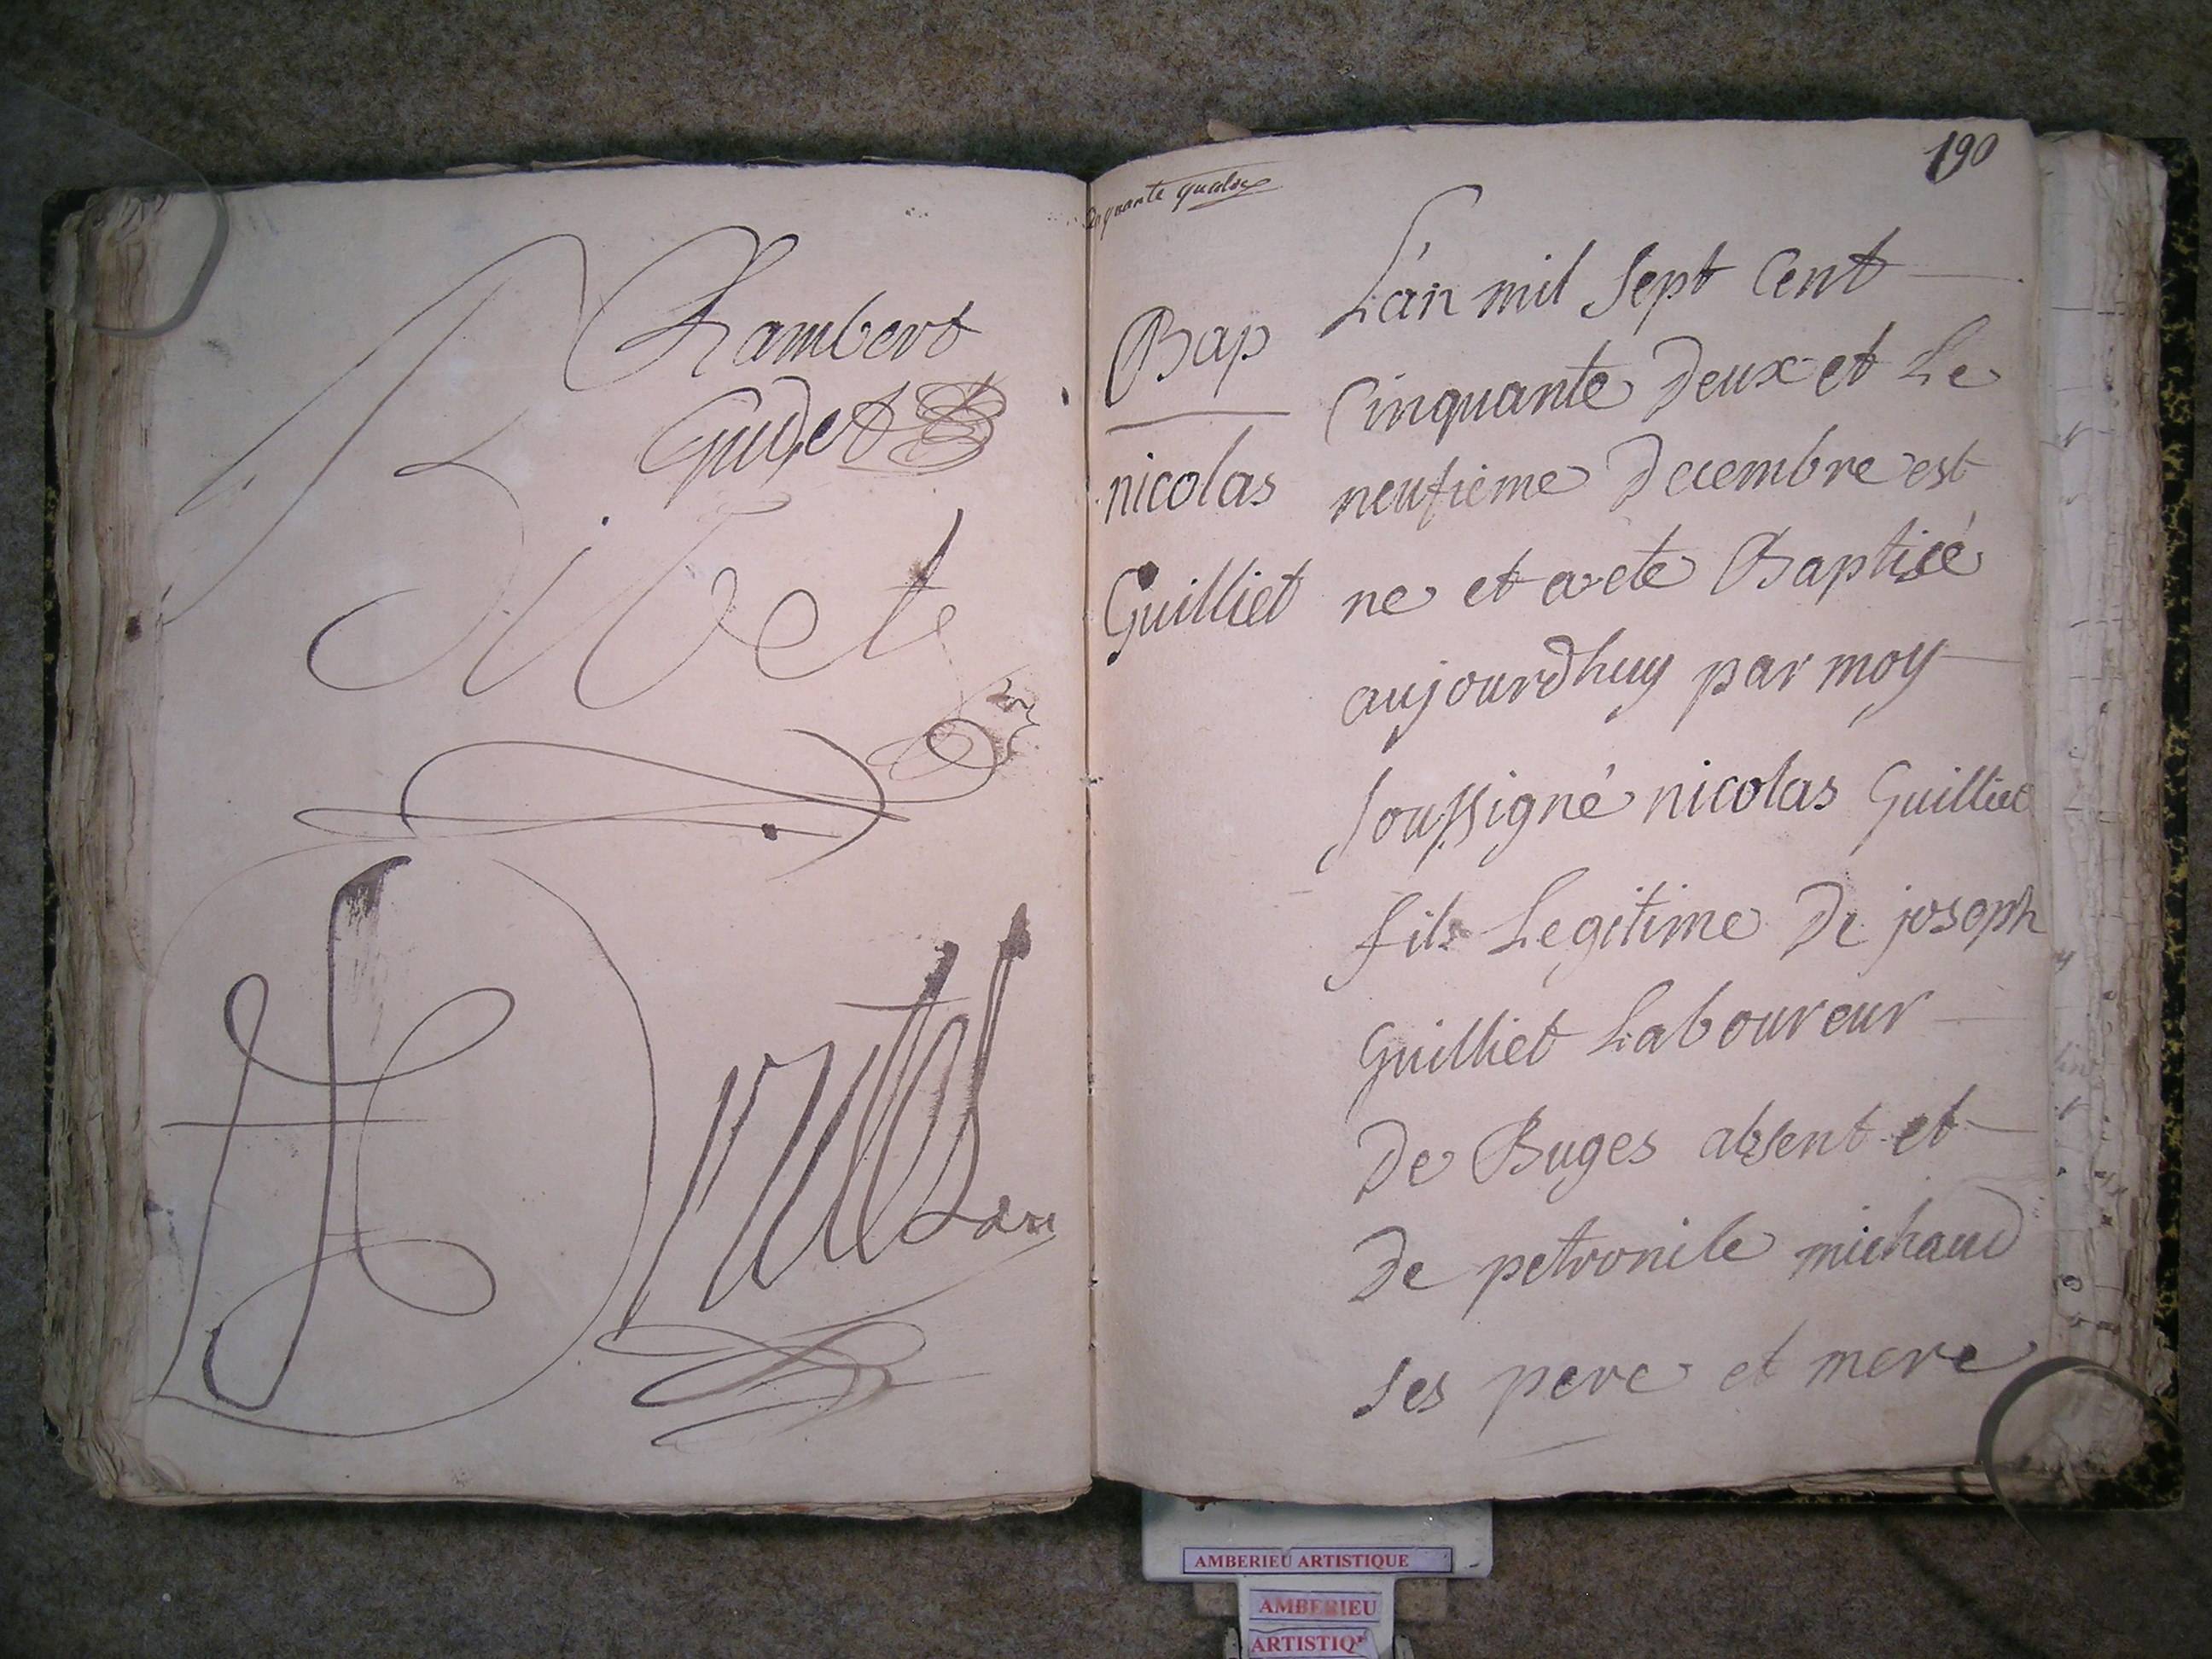 Rambert
Gudet
Bivet
quante quatre
190
Bap
nicolas
Guilliet
L'an mil sept cent
Cinquante deux et Le
neufieme decembre est
ne et a ete Baptisé
aujourdhuy par moy
soussigné nicolas Guilliet
fils Legitime de joseph
Guilliet Laboureur
De Buges absent et
De petronile michaud
ses pere et mere
AMBERIEU ARTISTIQUE
AMBERIEU
ARTISTIQ